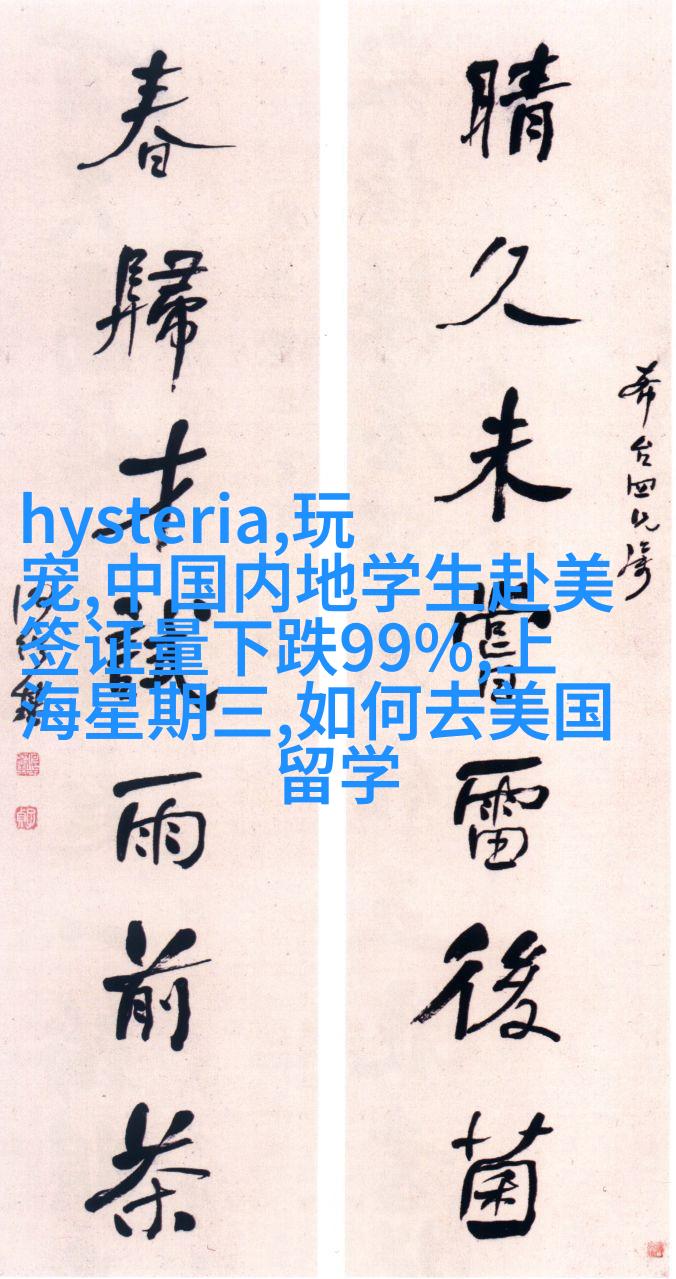 晴久未嘗雷後菌
春歸才雨前茶
hysteria,玩
宠,中国内地学生赴美
签证量下跌99%,上
海星期三,如何去美国
留学